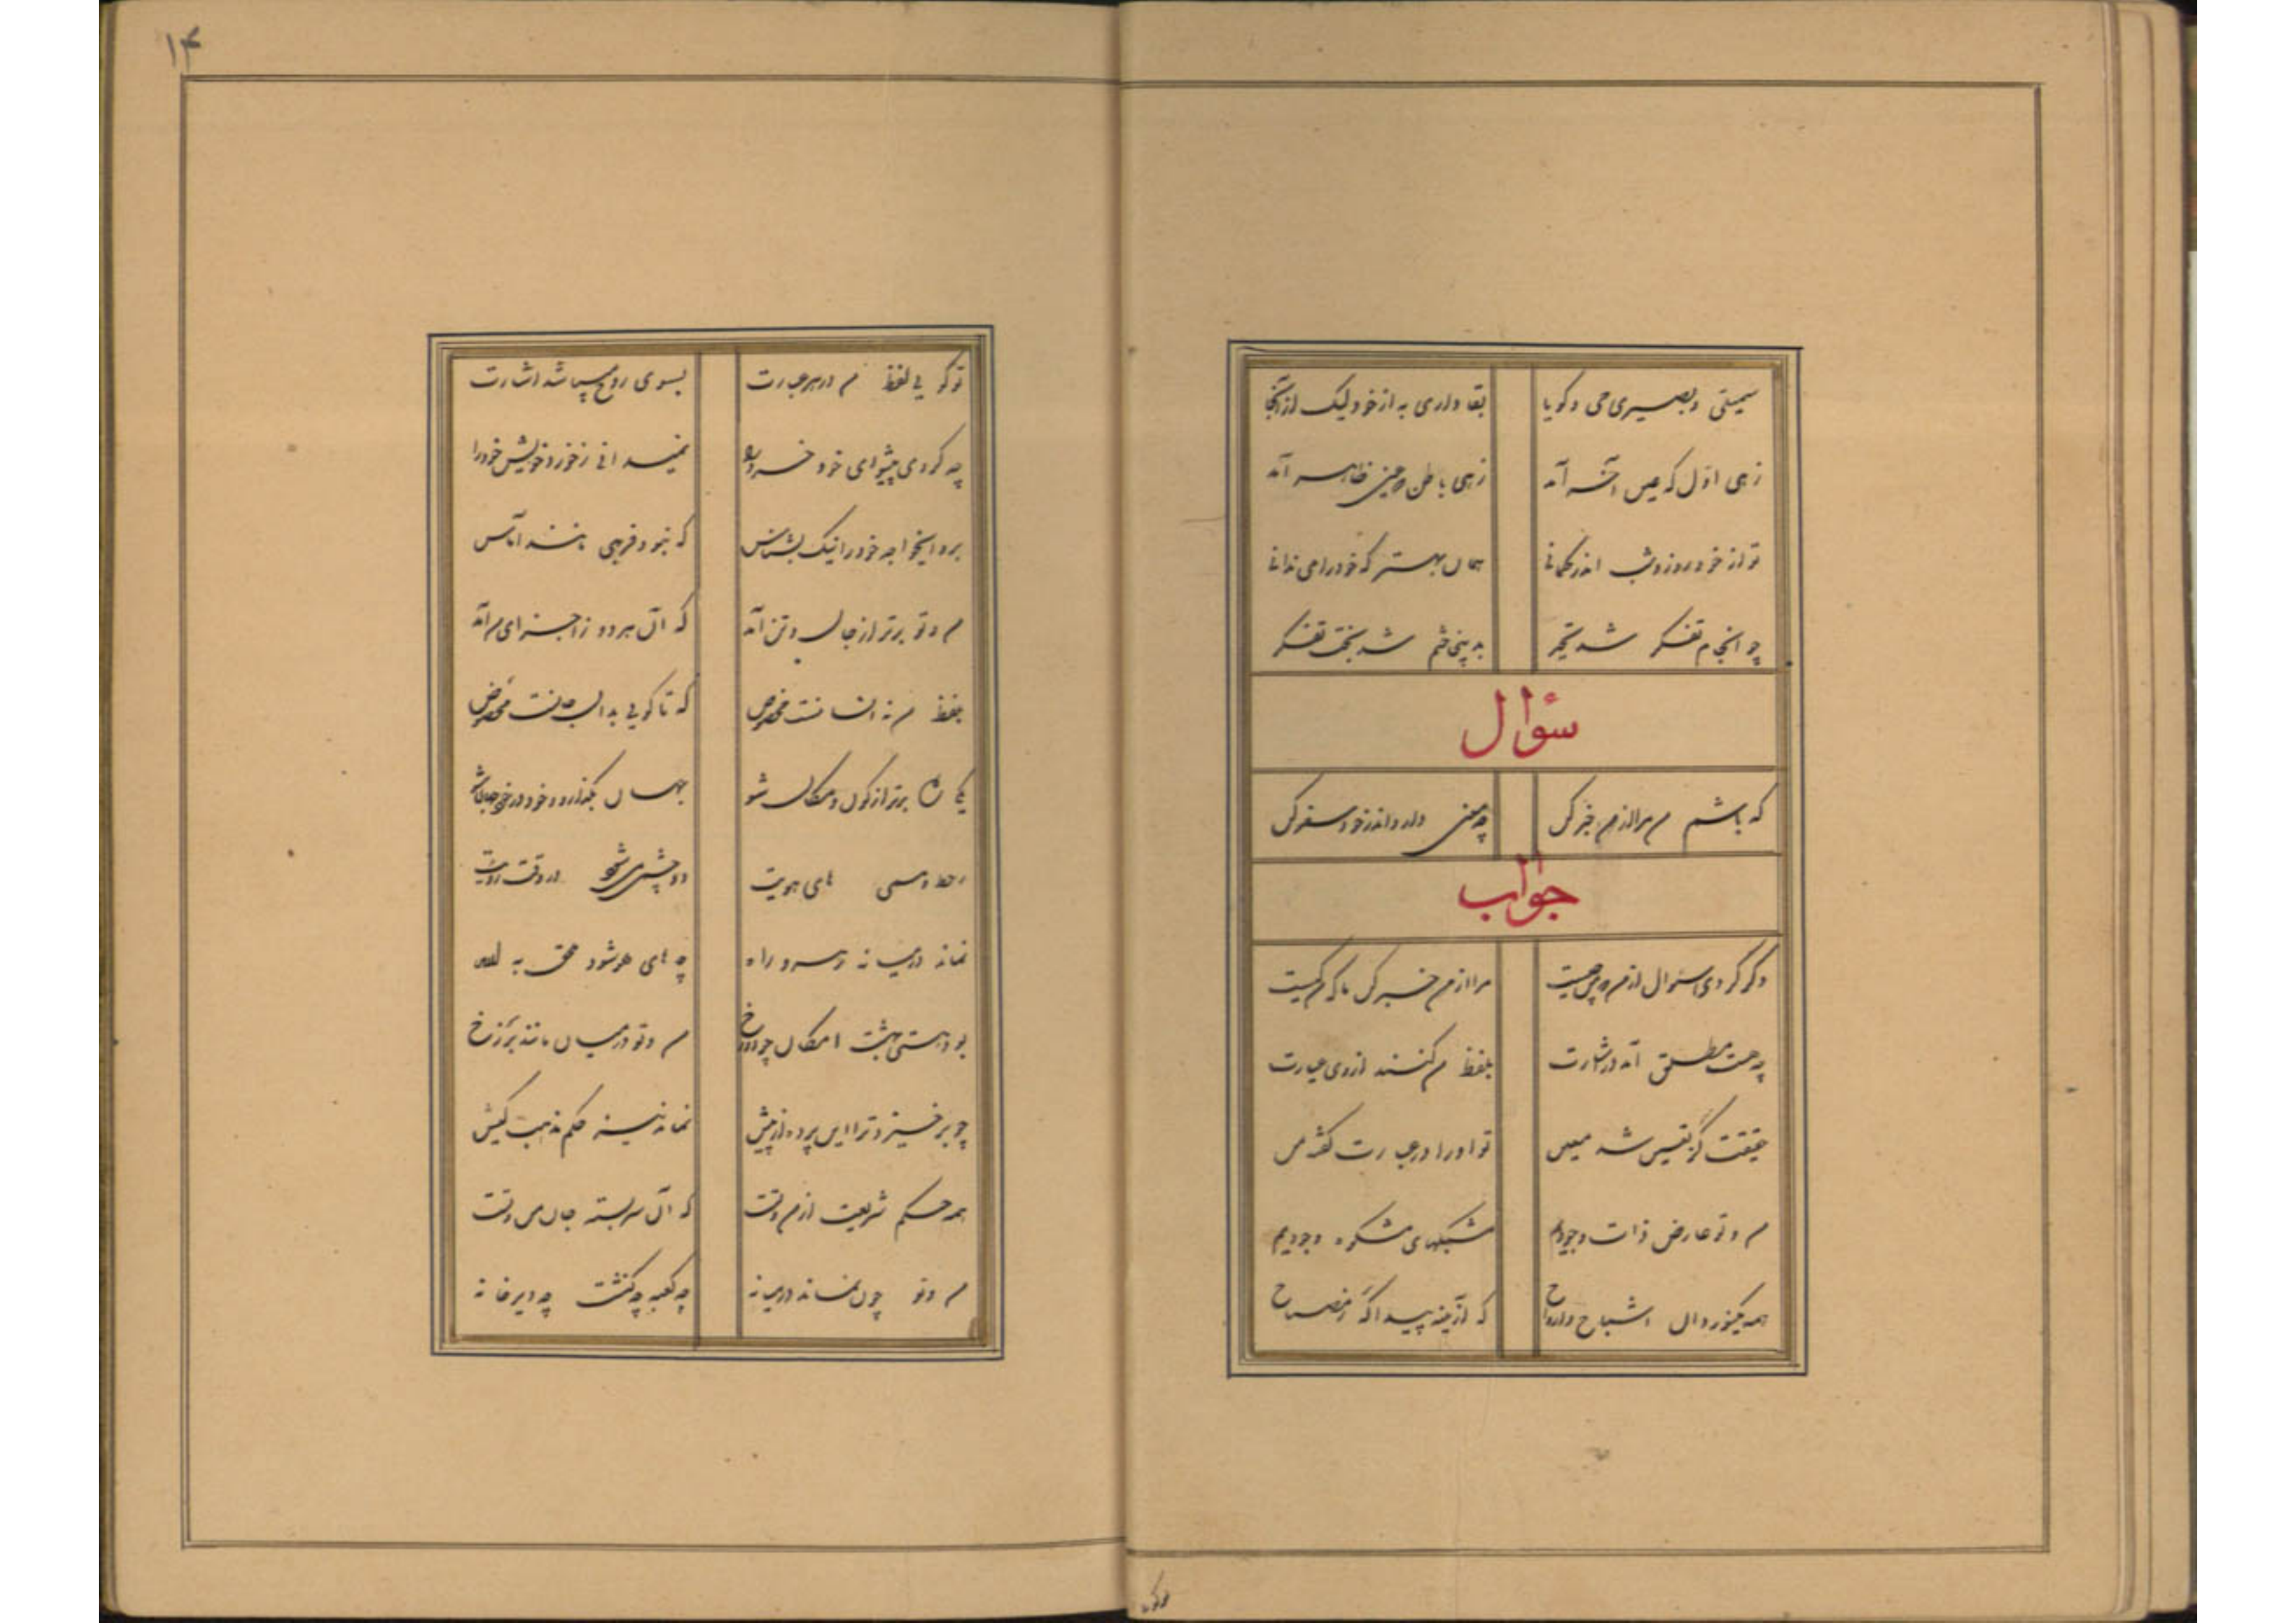 سمیعی و بصیری حی و گویا
بقا داری نه از خود لیک از آنجا
زهی اول که عین آخر آمد
زهی باطن که عین ظاهر آمد
تو از خود روز و شب اندر گمانی
همان بهتر که خود را می ندانی
چو انجام تفکر شد تحیر
بدینجا ختم شد بحث تفکر
سئوال
که باشم من مرا از من خبر کن
چه معنی دارد اندر خود سفر کن
جواب
دگر کردی سئوال از من که من چیست
مرا از من خبر کن تا که من کیست
چه هست مطلق آمد در اشارت
بلفظ من کنند از وی عبارت
حقیقت کز تعین شد معین
تو او را در عبارت گفته من
من و تو عارض ذات وجودیم
مشبکهای مشکوة وجودیم
همه یکنور دان اشباح و ارواح
که از آینه پیدا گه ز مصباح
تو گویی لفظ من در هر عبارت
بسوی روح میباشد اشارت
چه کردی پیشوای خود خرد را
نمیدانی ز خود جزو خویش خود را
برو ایخواجه خود را نیک بشناس
که نبود فربهی مانند آماس
من و تو برتر از جان و تن آمد
که آن هر دو ز اجزای من آمد
بلفظ من نه انسانست مخصوص
که تا گویی بدان جانست مخصوص
یکی ره برتر از کون و مکان شو
جهان بگذار و خود در خود جهان شو
ز خط وهمی های هویت
دو چشمی میشود در وقت رؤیت
نماند در میانه رهرو راه
چه های هو شود ملحق به الله
بود هستی بهشت امکان چو دوزخ
من و تو در میان مانند برزخ
چو برخیزد ترا این پرده از پیش
نماند نیز حکم مذهب کیش
همه حکم شریعت از من و تست
که آن بربسته جان من و تست
من و تو چون نماند در میانه
چه کعبه چه کنشت چه دیرخانه
۱۴